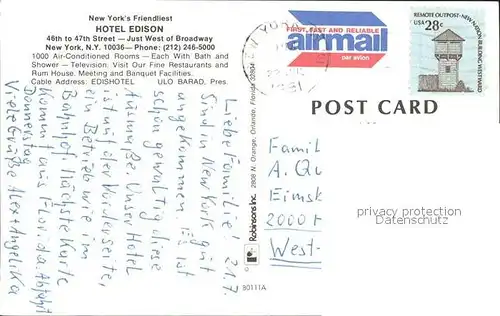 New York's Friendliest
HOTEL EDISON
46th to 47th Street — Just West of Broadway
New York, N.Y. 10036 — Phone: (212) 246-5000
1000 Air-Conditioned Rooms — Each With Bath and
Shower — Television. Visit Our Fine Restaurants and
Rum House. Meeting and Banquet Facilities.
Cable Address: EDISHOTEL ULO BARAD, Pres.
Liebe Familie! 21.7
Sind in New York gut
angekommen. Es ist
schön gewaltig diese
Ausmaße. Unser Hotel
ist auf der Vorderseite,
ein Betrieb wie im
Bahnhof. Nächste Karte
kommt aus Florida. Abfahrt
Donnerstag
Viele Grüße Alex+Angelika
Robinsons Inc. 2808 N. Orange, Orlando, Florida 32804
80111A
NEW YORK
1981
FIRST, FAST AND RELIABLE
airmail
par avion
REMOTE OUTPOST-NEW NATION BUILDING WESTWARD
USA 28c
POST CARD
Famil
A. Qu
Eimsk
2000 H
West-
privacy protection
Datenschutz